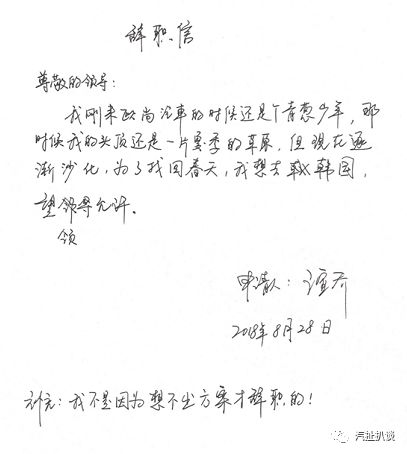 辞职信
尊敬的领导：
我刚来欧尚汽车的时候还是个青葱少年，那
时候我的头顶还是一片夏季的草原，但现在逐
渐沙化，为了找回春天，我想去韩国，
望领导允许。
领
申请人：
2018年8月28日
补充：我不是因为想不出方案才辞职的！
汽扯扒谈